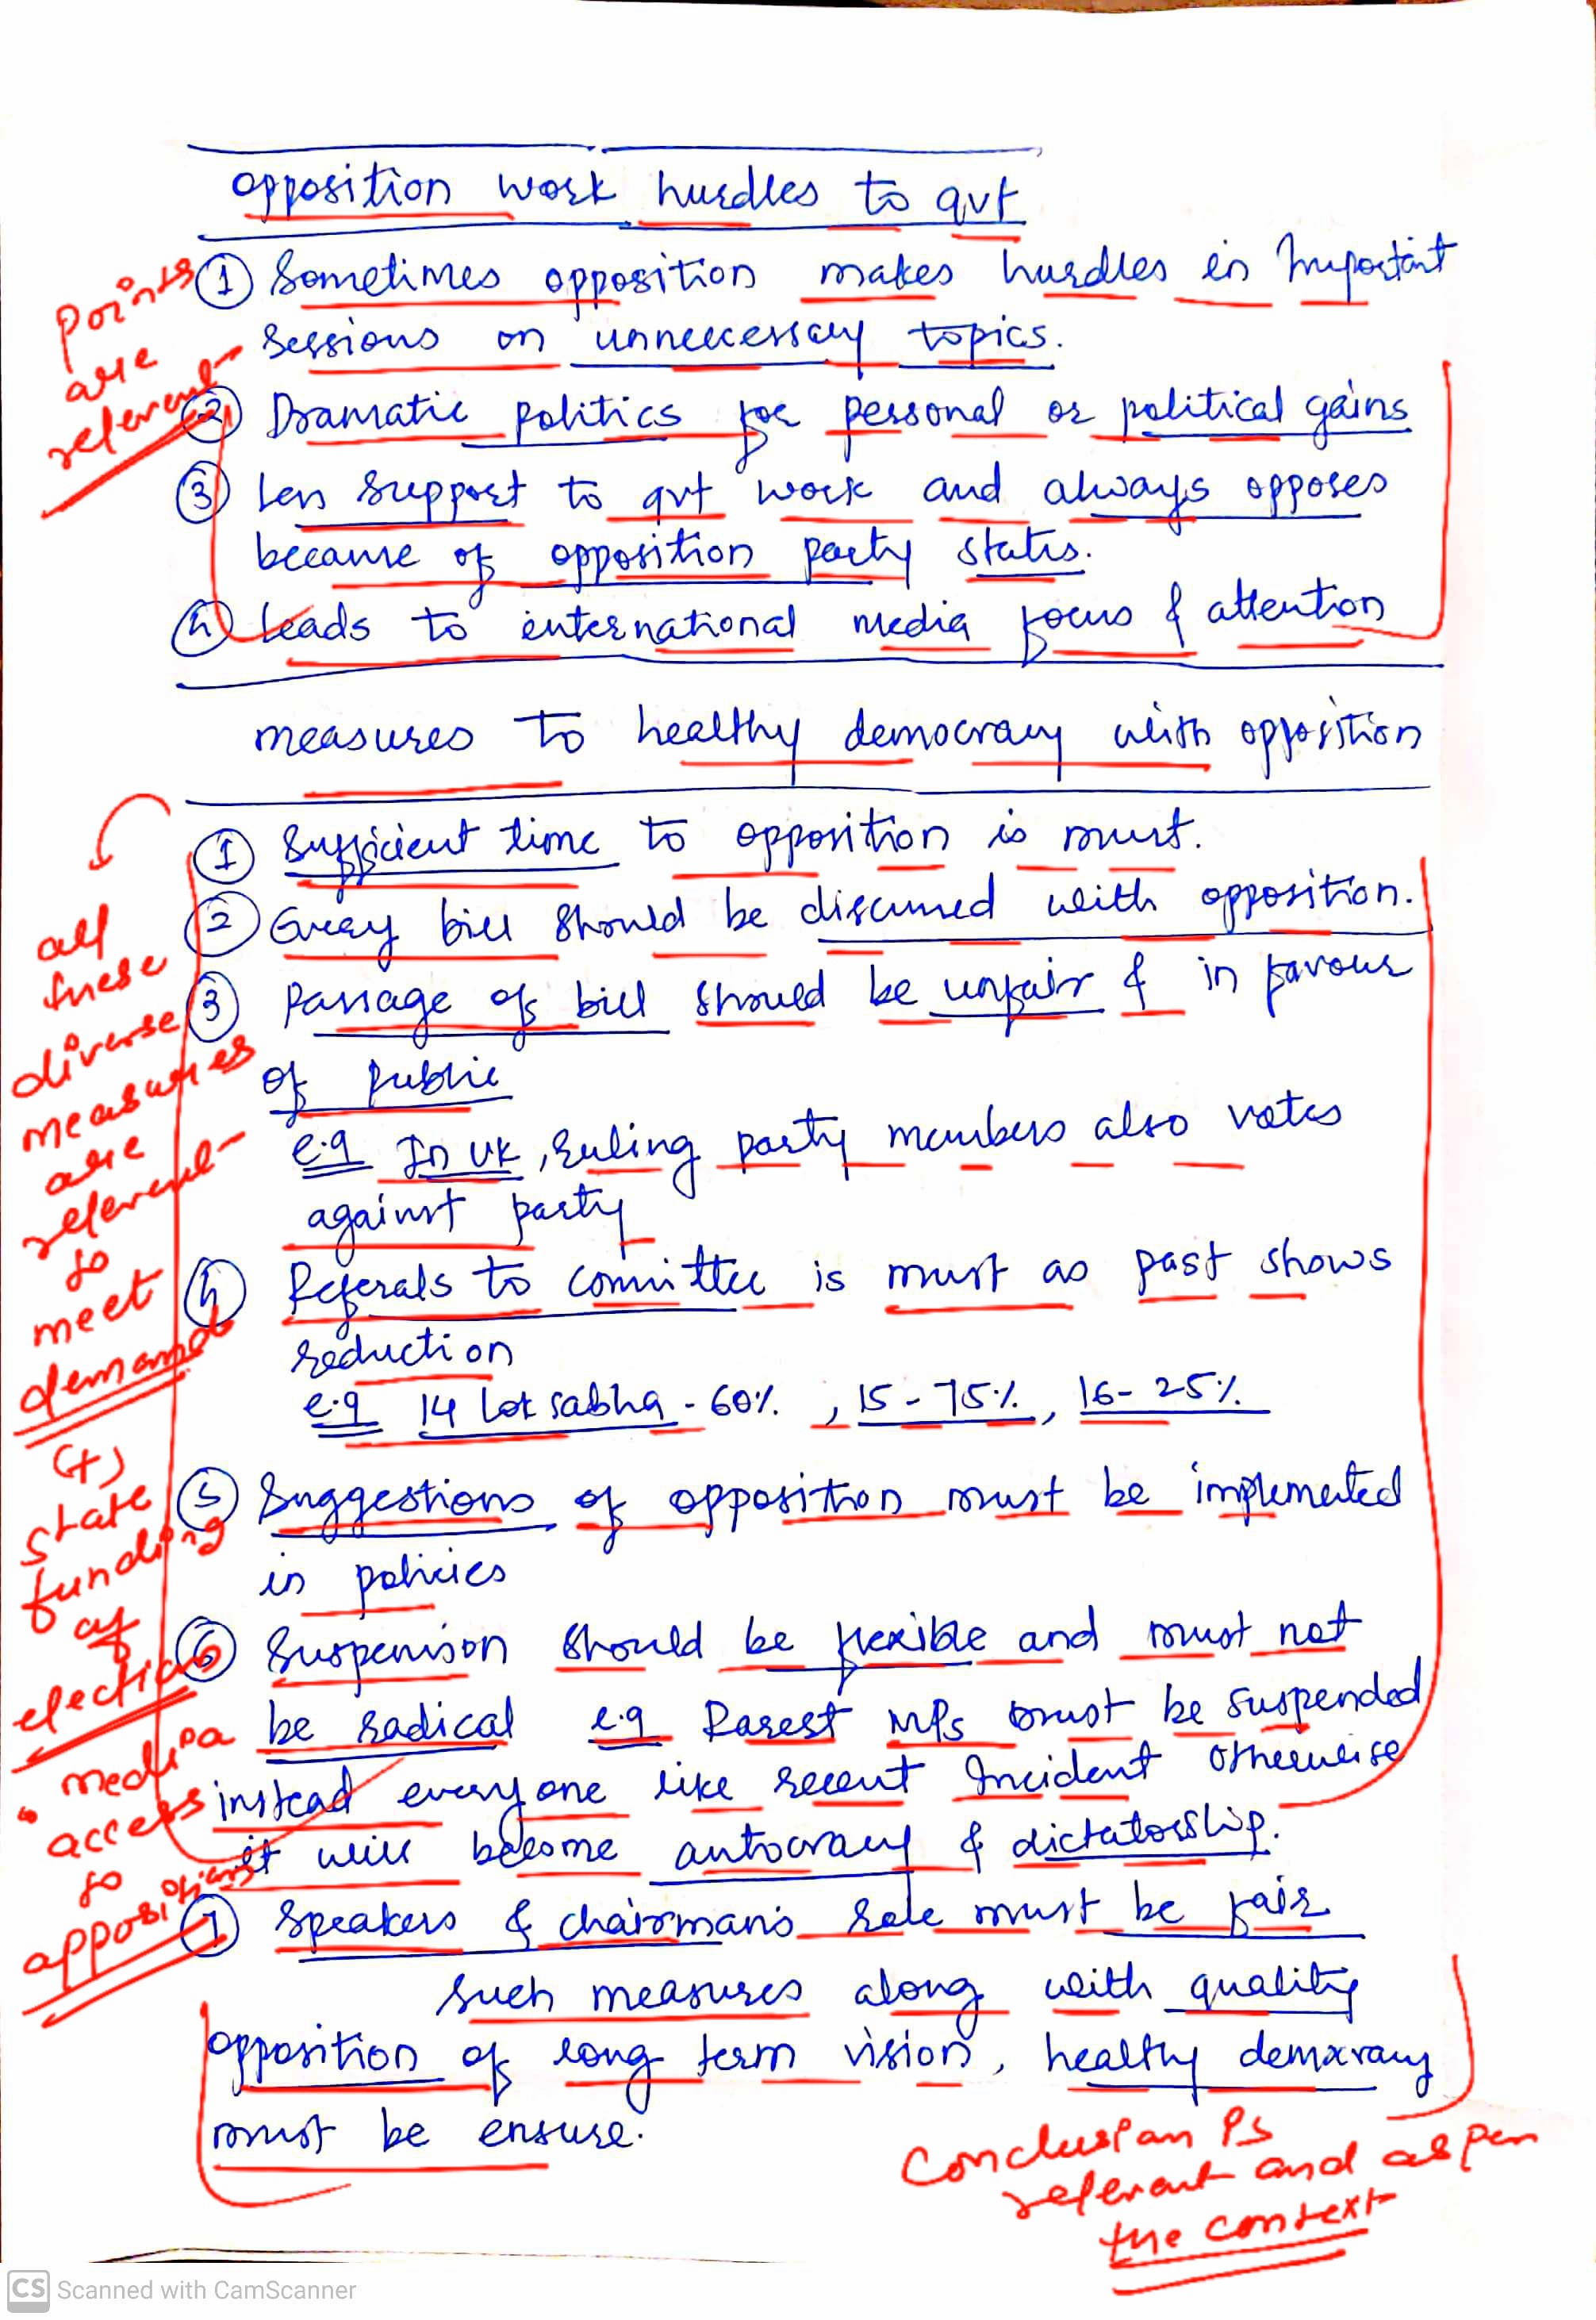 opposition work hurdles to gvt
① Sometimes opposition makes hurdles in Important
sessions on unneecessary topics.
② Dramatic politics for personal or political gains
③ Less support to gvt work and always opposes
because of opposition party states.
④ Leads to international media focus & attention
points
are
relevant
measures to healthy democracy with opposition
① Sufficient time to opposition is must.
② Every bill should be discussed with opposition.
③ Passage of bill should be unfair & in favour
of public
e.g In UK, ruling party members also votes
against party
④ Referals to committee is must as past shows
reduction
e.g 14 Lok sabha - 60%, 15 - 75%, 16 - 25%
⑤ Suggestions of opposition must be implemented
in policies
⑥ Suspension should be flexible and must not
be radical e.g Rarest MPs must be suspended
instead everyone like recent Incident otherwise
it will become autocracy & dictatorship.
⑦ Speakers & chairman's role must be fair
such measures along with quality
opposition of long term vision, healthy democracy
must be ensure.
all
these
diverse
measures
are
relevant
to
meet
demand
(+)
state
funding
of
elections
• media
access
to
opposition
Conclusion is
relevant and as per
the context
CS Scanned with CamScanner